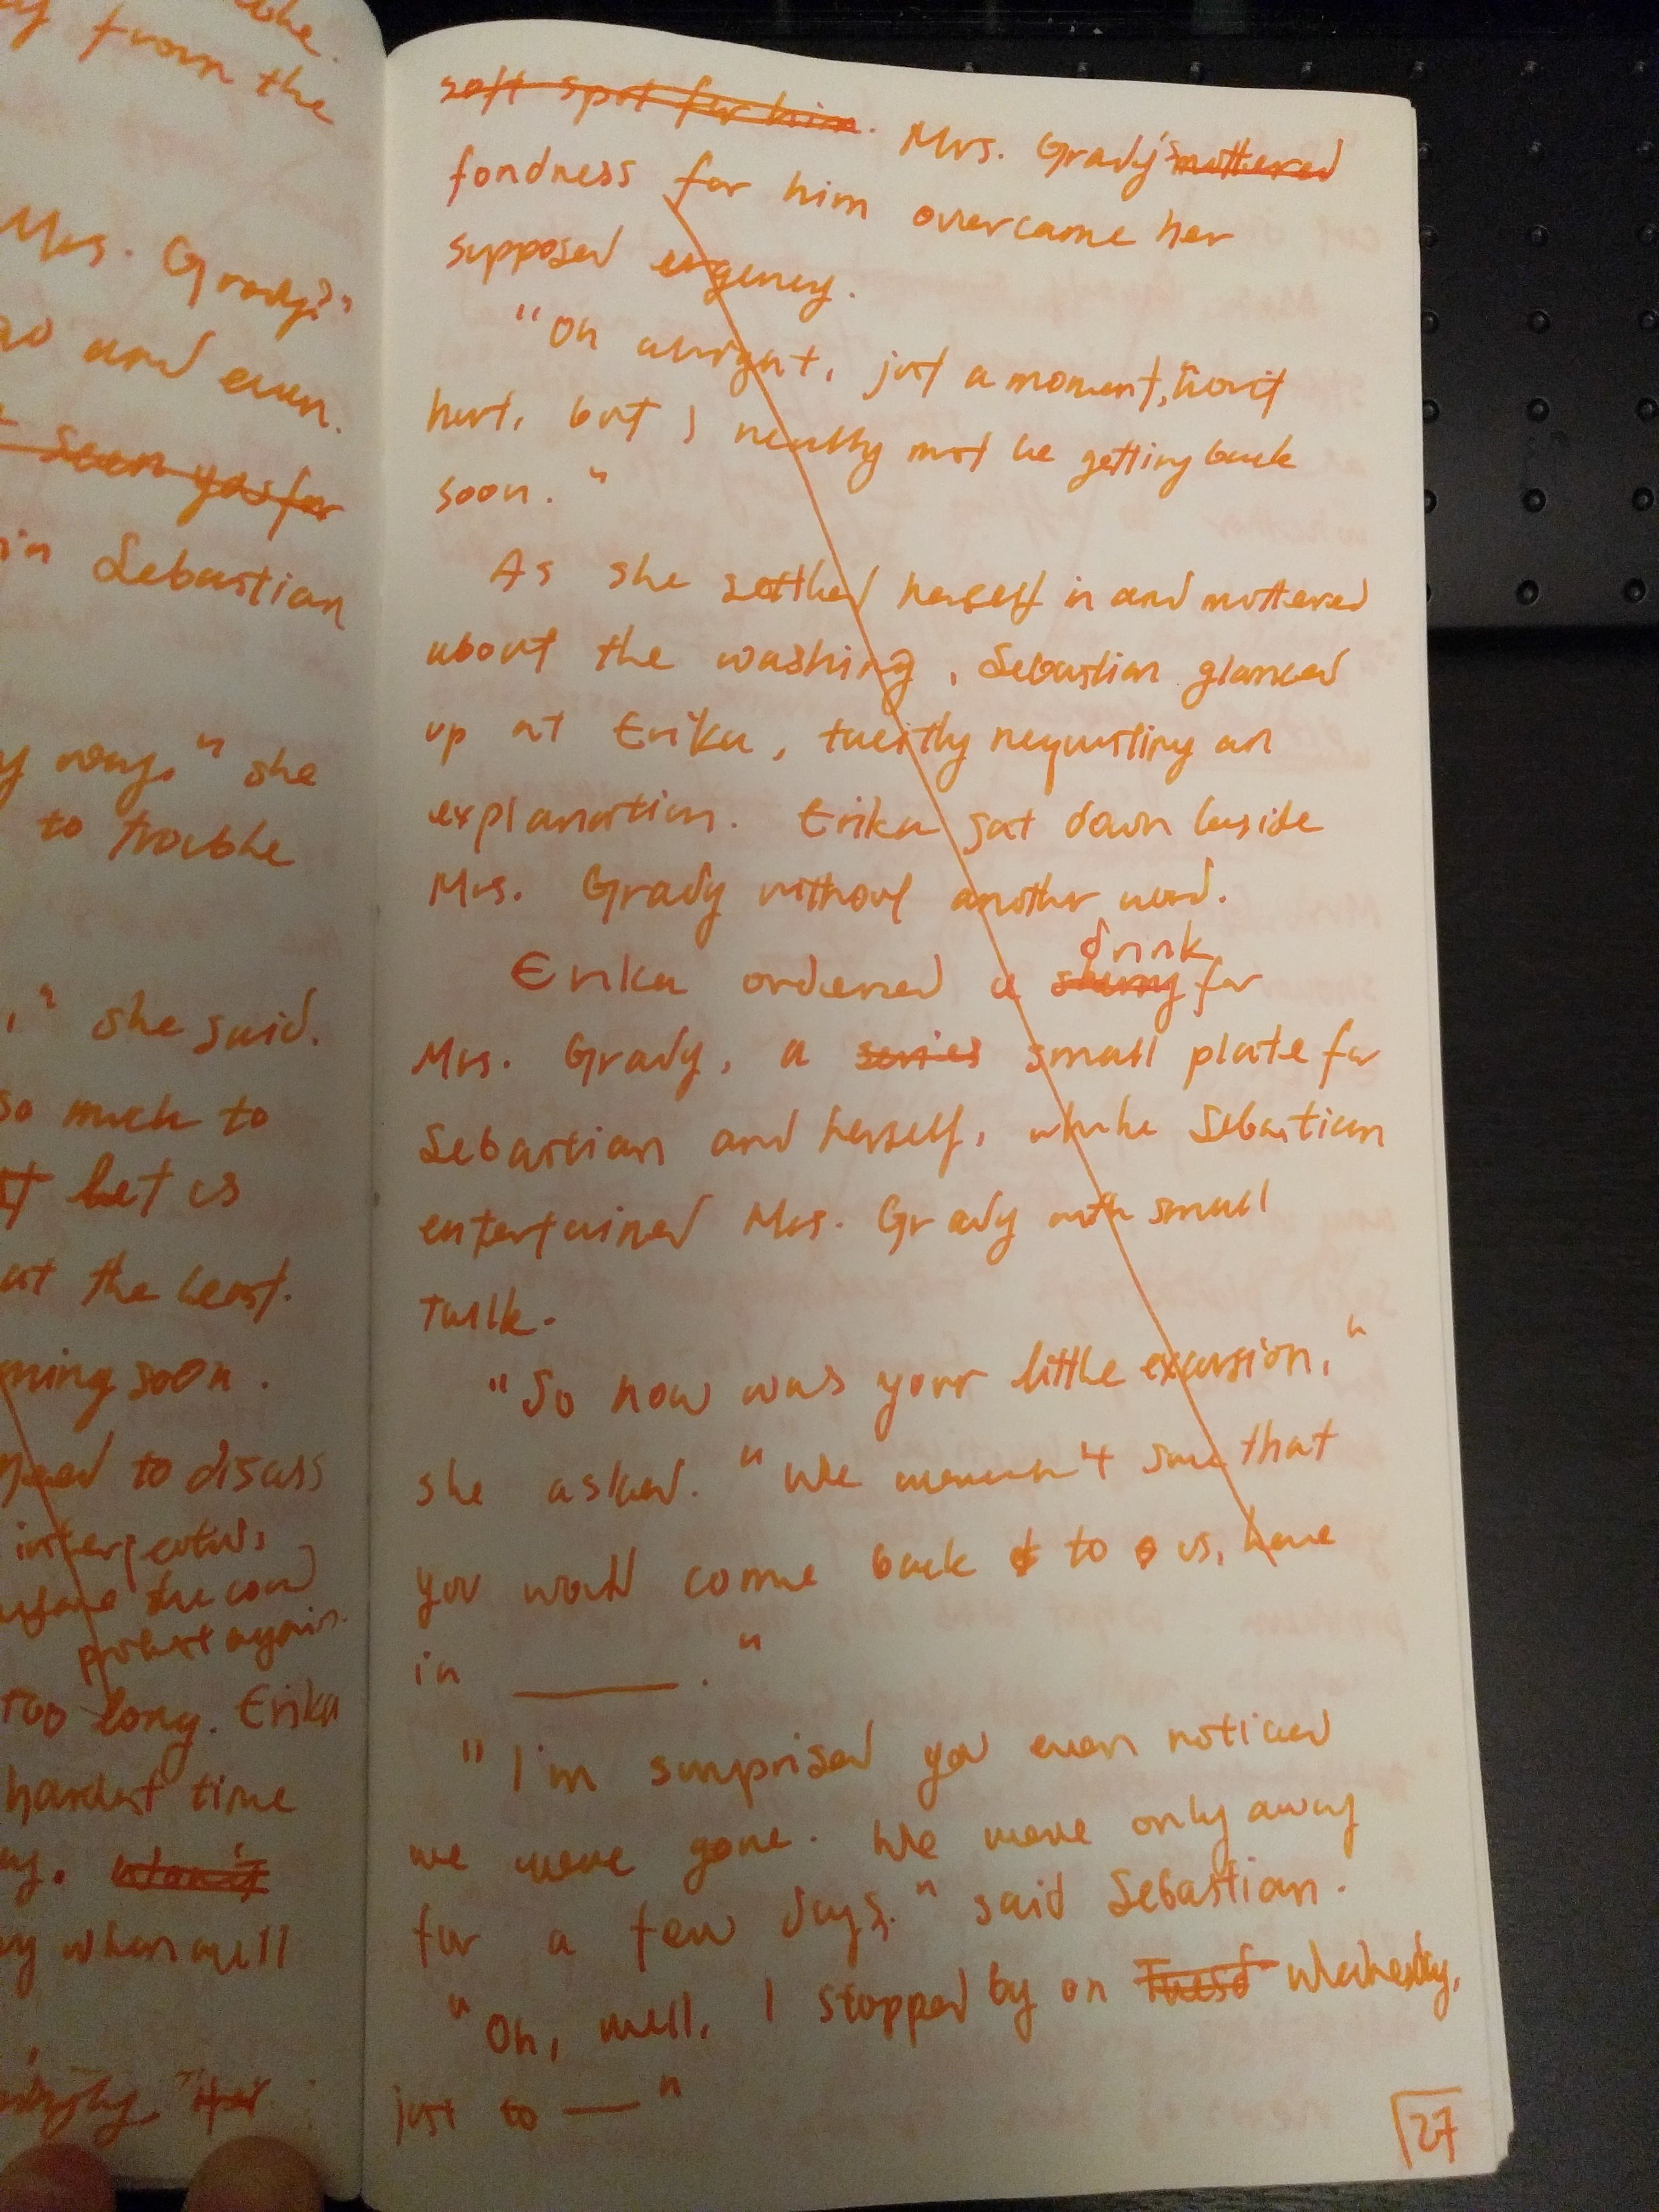 the.
from the
Mrs. Grady?"
and even.
seen you for
in Sebastian
way." she
to trouble
," she said.
so much to
let us
at the least.
soon.
need to discuss
the cow
protest again.
too long. Erika
hardest time
when will
soft spot for him. Mrs. Grady's muttered
fondness for him overcame her
supposed urgency.
"Oh alright, just a moment, won't
hurt, but I really must be getting back
soon."
As she settled herself in and muttered
about the washing, Sebastian glanced
up at Erika, tacitly requesting an
explanation. Erika sat down beside
Mrs. Grady without another word.
drink
Erika ordered a sherry for
Mrs. Grady, a series small plate for
Sebastian and herself, while Sebastian
entertained Mrs. Grady with small
talk.
"So how was your little excursion,"
she asked. "We weren't sure that
you would come back to us, here
in ______."
"I'm surprised you even noticed
we were gone. We were only away
for a few days." said Sebastian.
"Oh, well, I stopped by on Tuesd Wednesday,
just to —"
27